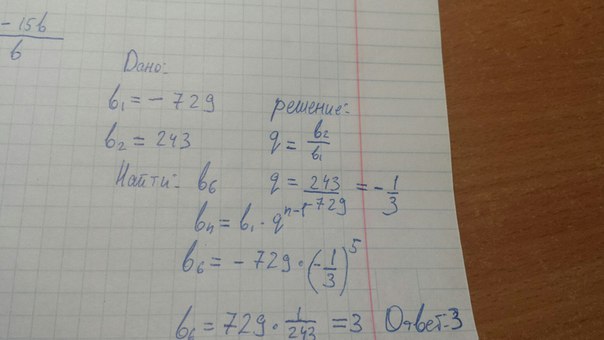 - 15b
b
Дано:
b₁ = - 729
b₂ = 243
Найти: b6
решение:
q = b₂/b₁
q = 243/-729 = - 1/3
bn = b₁ · q^n-1
b6 = - 729 · (- 1/3)^5
b6 = 729 · 1/243 = 3 Ответ-3